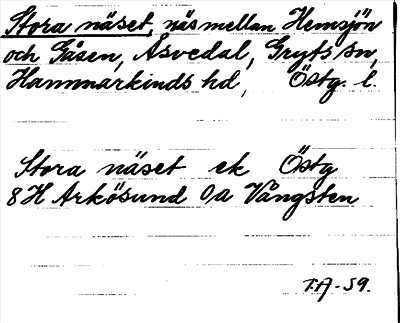 Stora näset, näs mellan Hemsjön
och Gåsen, Åsvedal, Gryts sn,
Hammarkinds hd, Östg. l.
Stora näset ek Östg
8H Arkösund 0/a Vångsten
T.A-59.